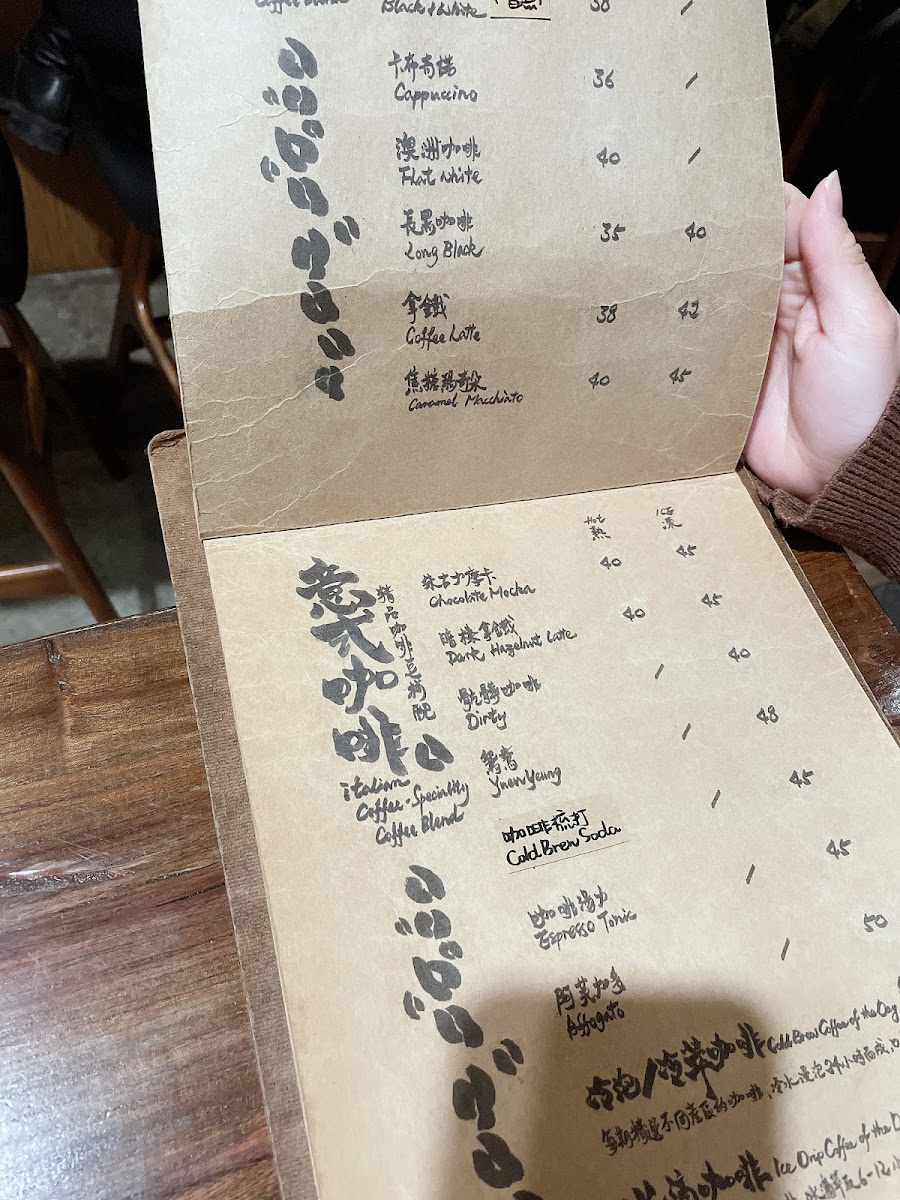 Coffee Blend
Black & White 38 /
卡布奇諾
Cappuccino 36 /
澳洲咖啡
Flat White 40 /
長黑咖啡
Long Black 35 40
拿鐵
Coffee Latte 38 42
焦糖瑪奇朵
Caramel Macchiato 40 45
Hot ICE
熱 凍
意式咖啡
精品咖啡豆拼配
italian
Coffee·Speciality
Coffee Blend
朱古力摩卡 40 45
Chocolate Mocha
暗榛拿鐵 40 45
Dark Hazelnut Latte
骯髒咖啡 / 40
Dirty
鴛鴦 / 48
YuenYeung
咖啡梳打 / 45
Cold Brew Soda
咖啡湯力 / 45
Espresso Tonic
阿芙加多 / 50
Affogato
冷泡/冷萃咖啡 Cold Brew Coffee of the Day
每期精選不同產區的咖啡,冷水浸泡24小時而成,
滴咖啡 Ice Drip Coffee of the D
6-12小